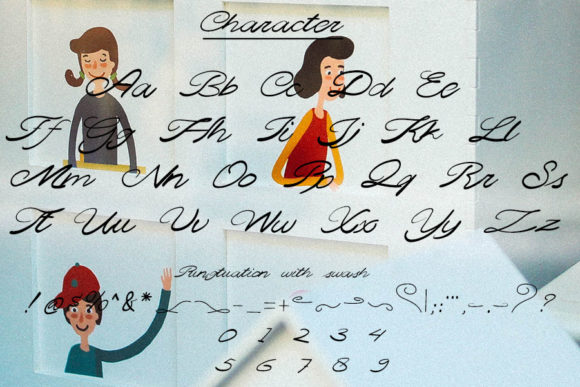 Character
Aa Bb Cc Dd Ee
Ff Gg Hh Ii Jj Kk Ll
Mm Nn Oo Pp Qq Rr Ss
Tt Uu Vv Ww Xx Yy Zz
Pungtuation with swash
! @ & % ^ & * - _ = + | ; : " ' , - . - ?
0 1 2 3 4
5 6 7 8 9